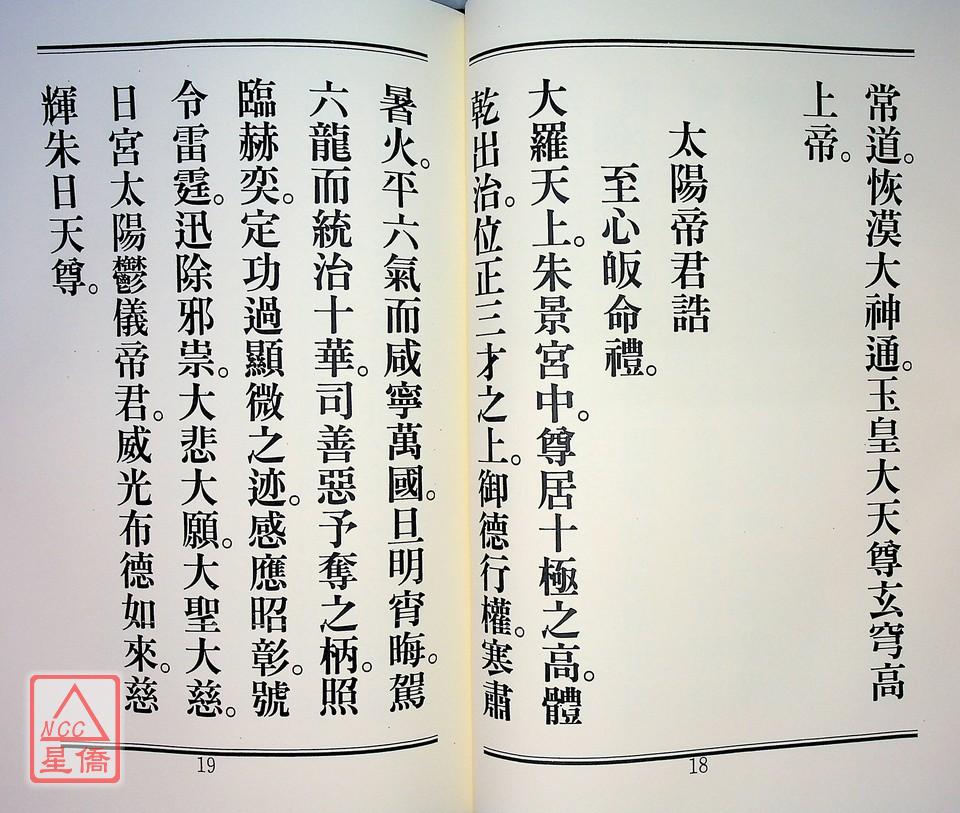 常道。恢漠大神通。玉皇大天尊玄穹高
上帝。
太陽帝君誥
至心皈命禮。
大羅天上。朱景宮中。尊居十極之高。體
乾出治。位正三才之上。御德行權。寒肅
18
暑火。平六氣而咸寧萬國。旦明宵晦。駕
六龍而統治十華。司善惡予奪之柄。照
臨赫奕。定功過顯微之迹。感應昭彰。號
令雷霆。迅除邪祟。大悲大願。大聖大慈。
日宮太陽鬱儀帝君。威光布德如來。慈
輝朱日天尊。
19
NCC
星僑